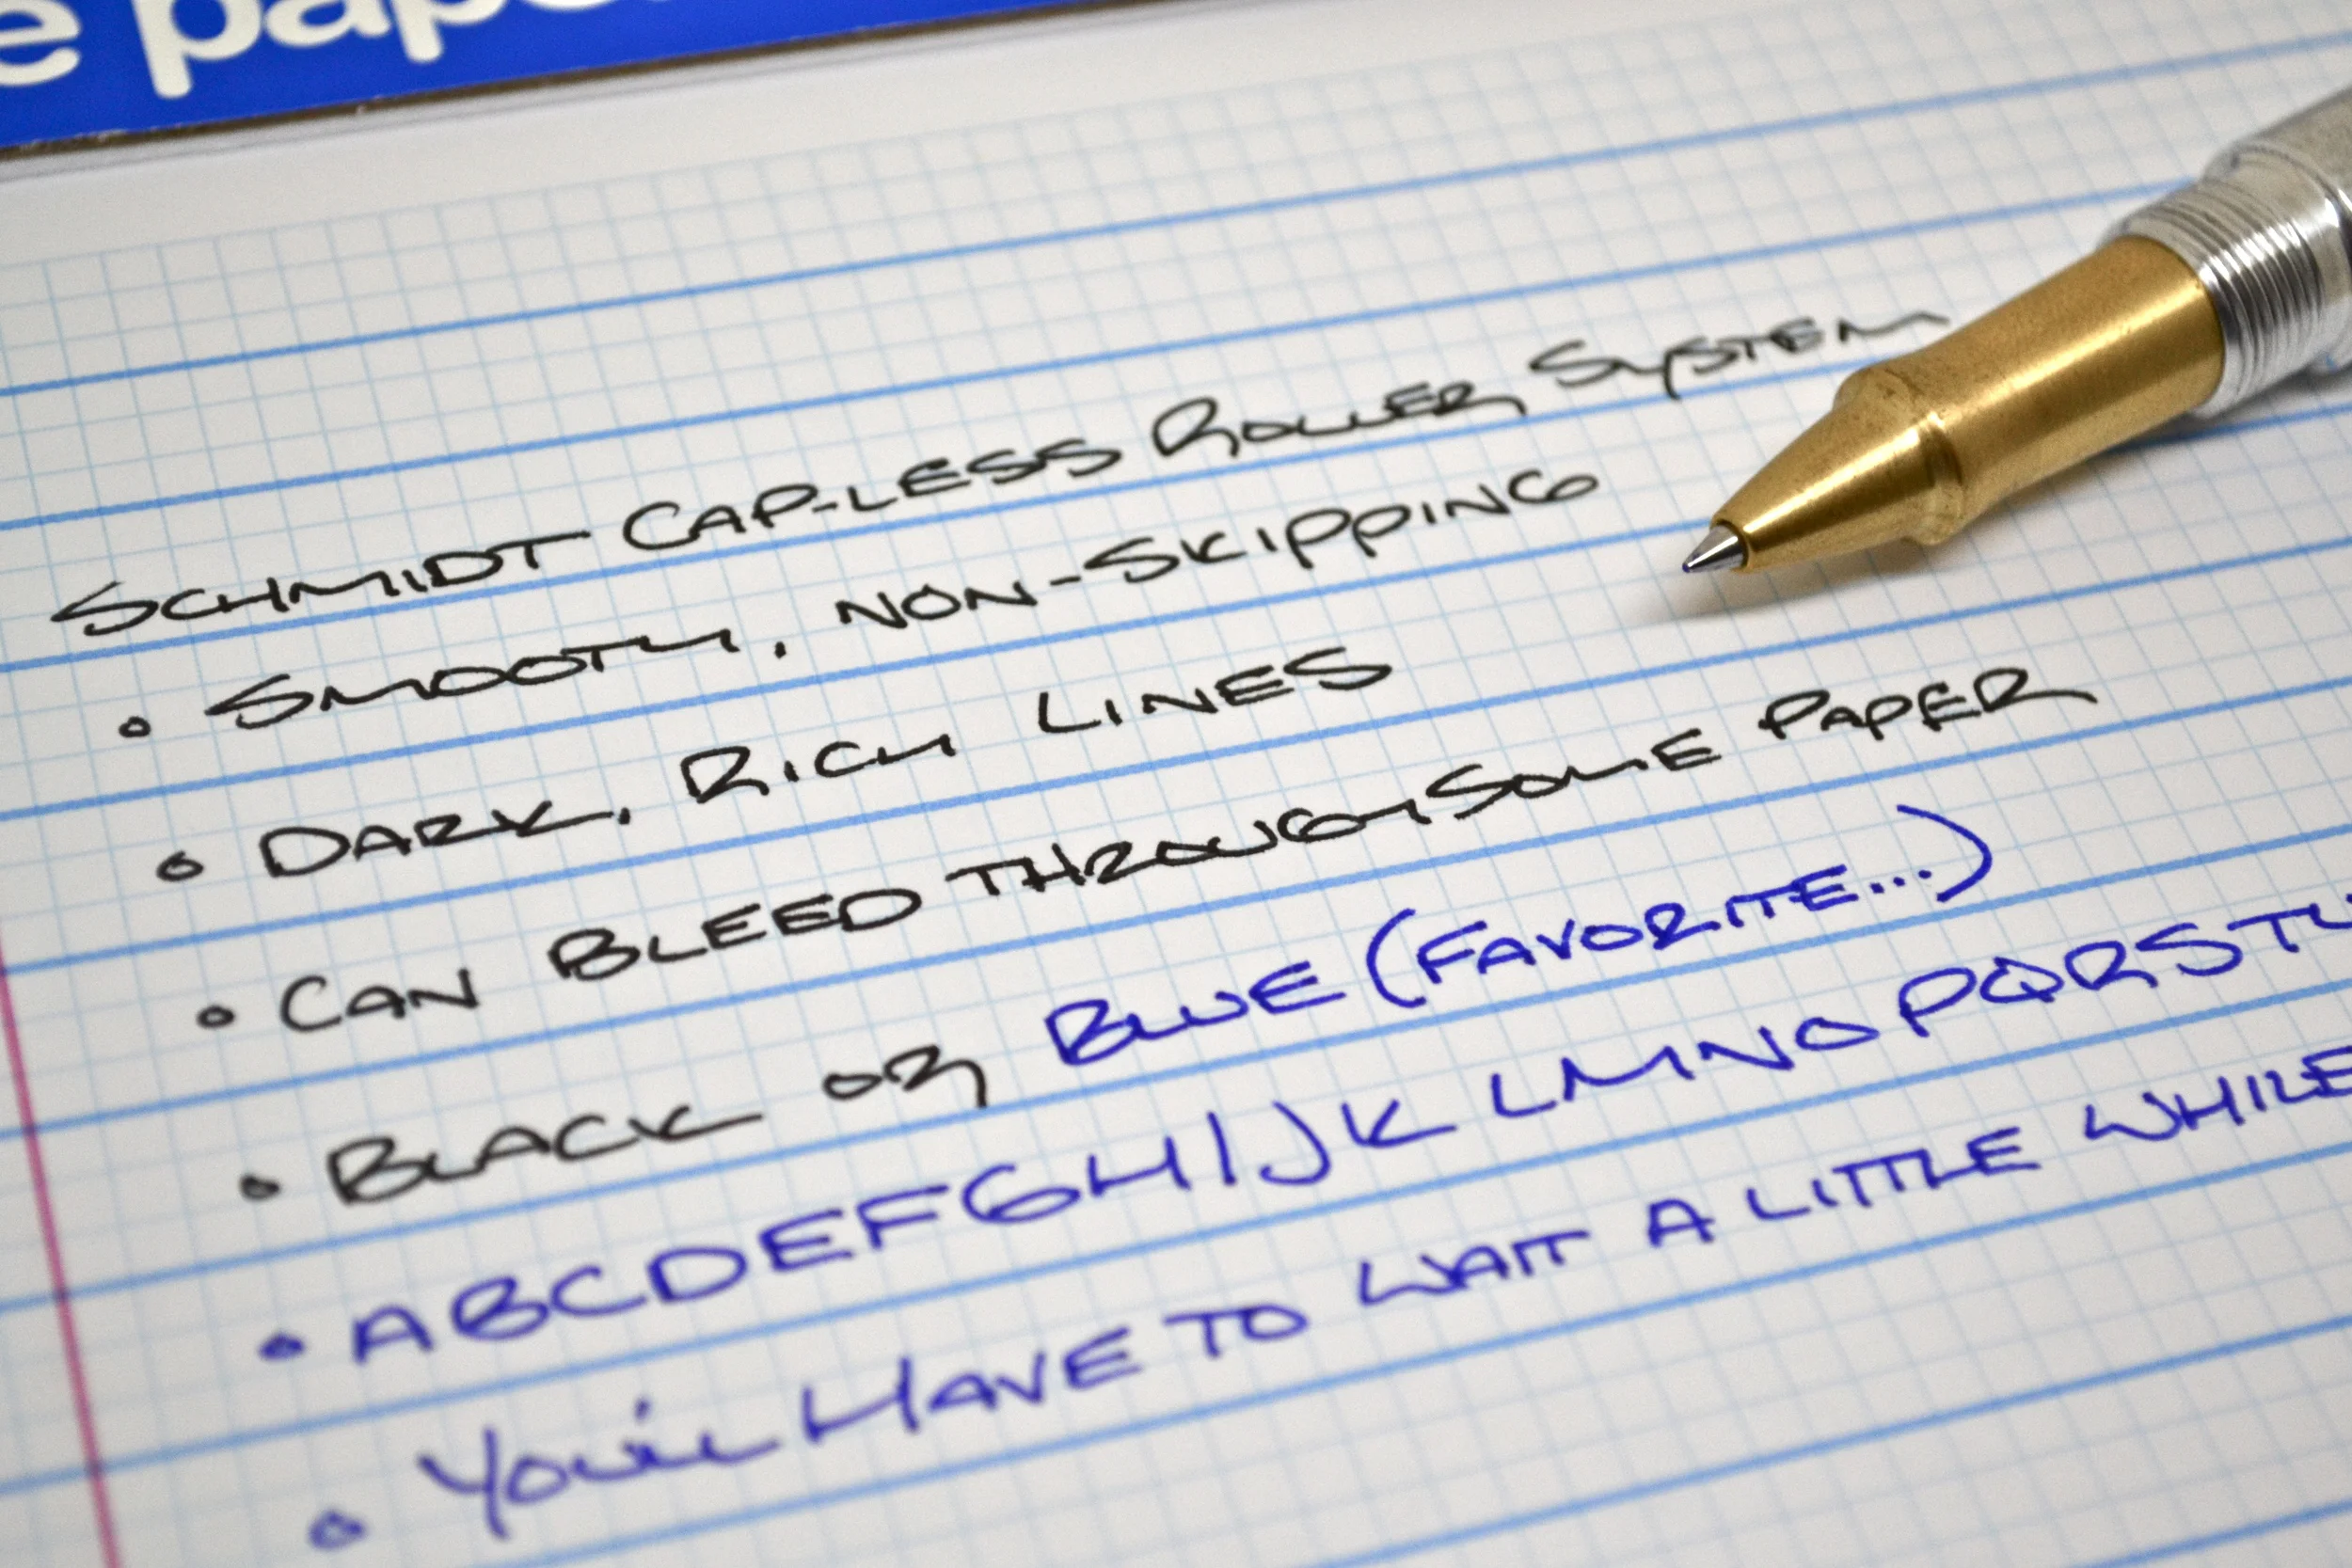 e pape
SCHMIDT CAP-LESS ROLLER SYSTEM
• SMOOTH, NON-SKIPPING
• DARK, RICH LINES
• CAN BLEED THROUGH SOME PAPER
• BLACK OR BLUE (FAVORITE...)
• ABCDEFGHIJK LMNOPQRSTU
• YOU'LL HAVE TO WAIT A LITTLE WHILE